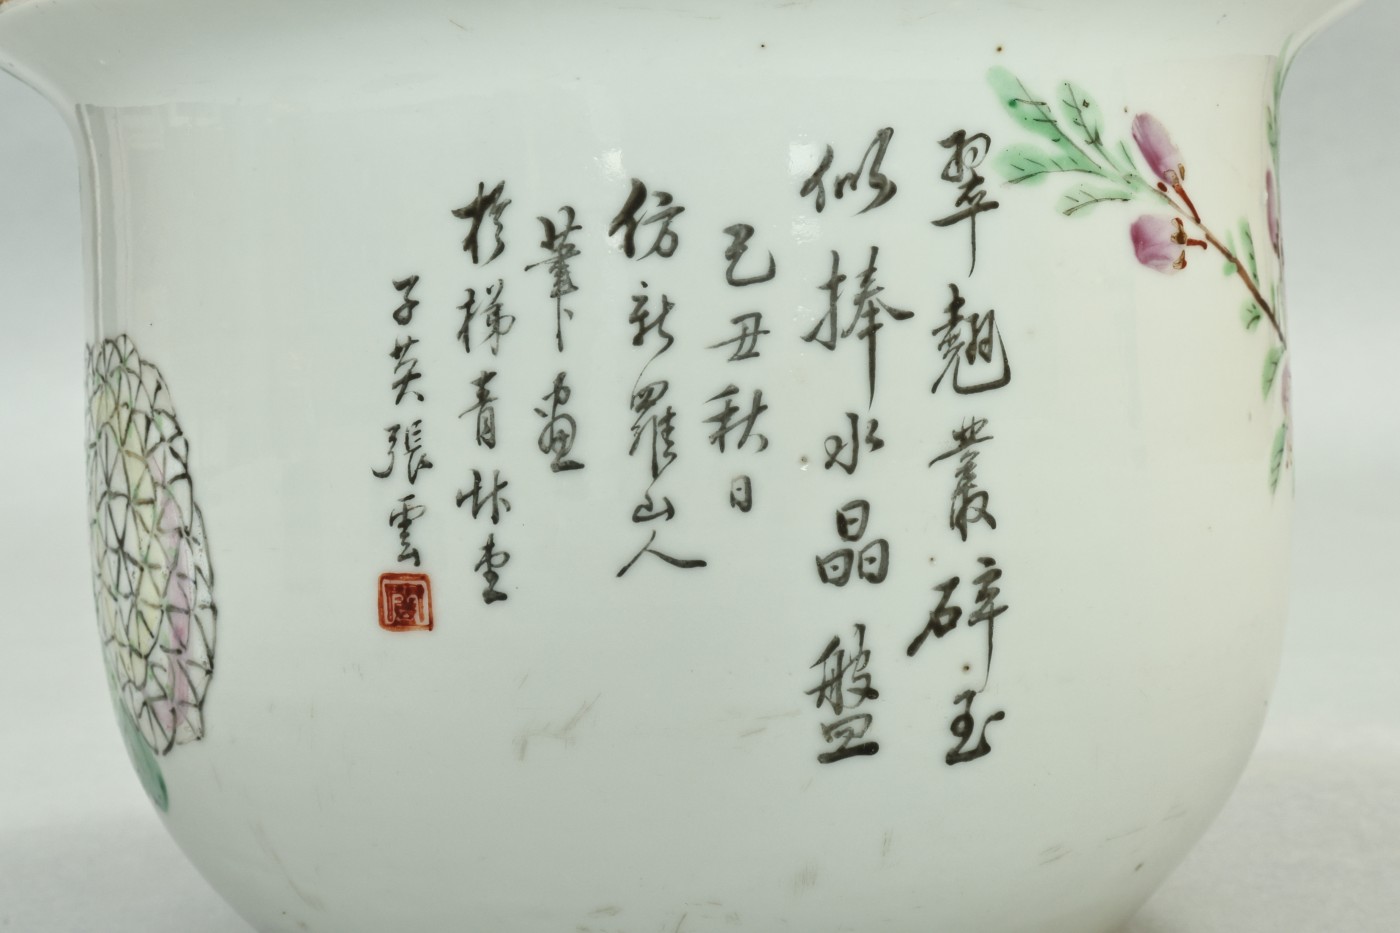 翠翹叢碎玉
似捧水晶盤
己丑秋日
仿新羅山人
筆下畫
於梯青書堂
子英張雲